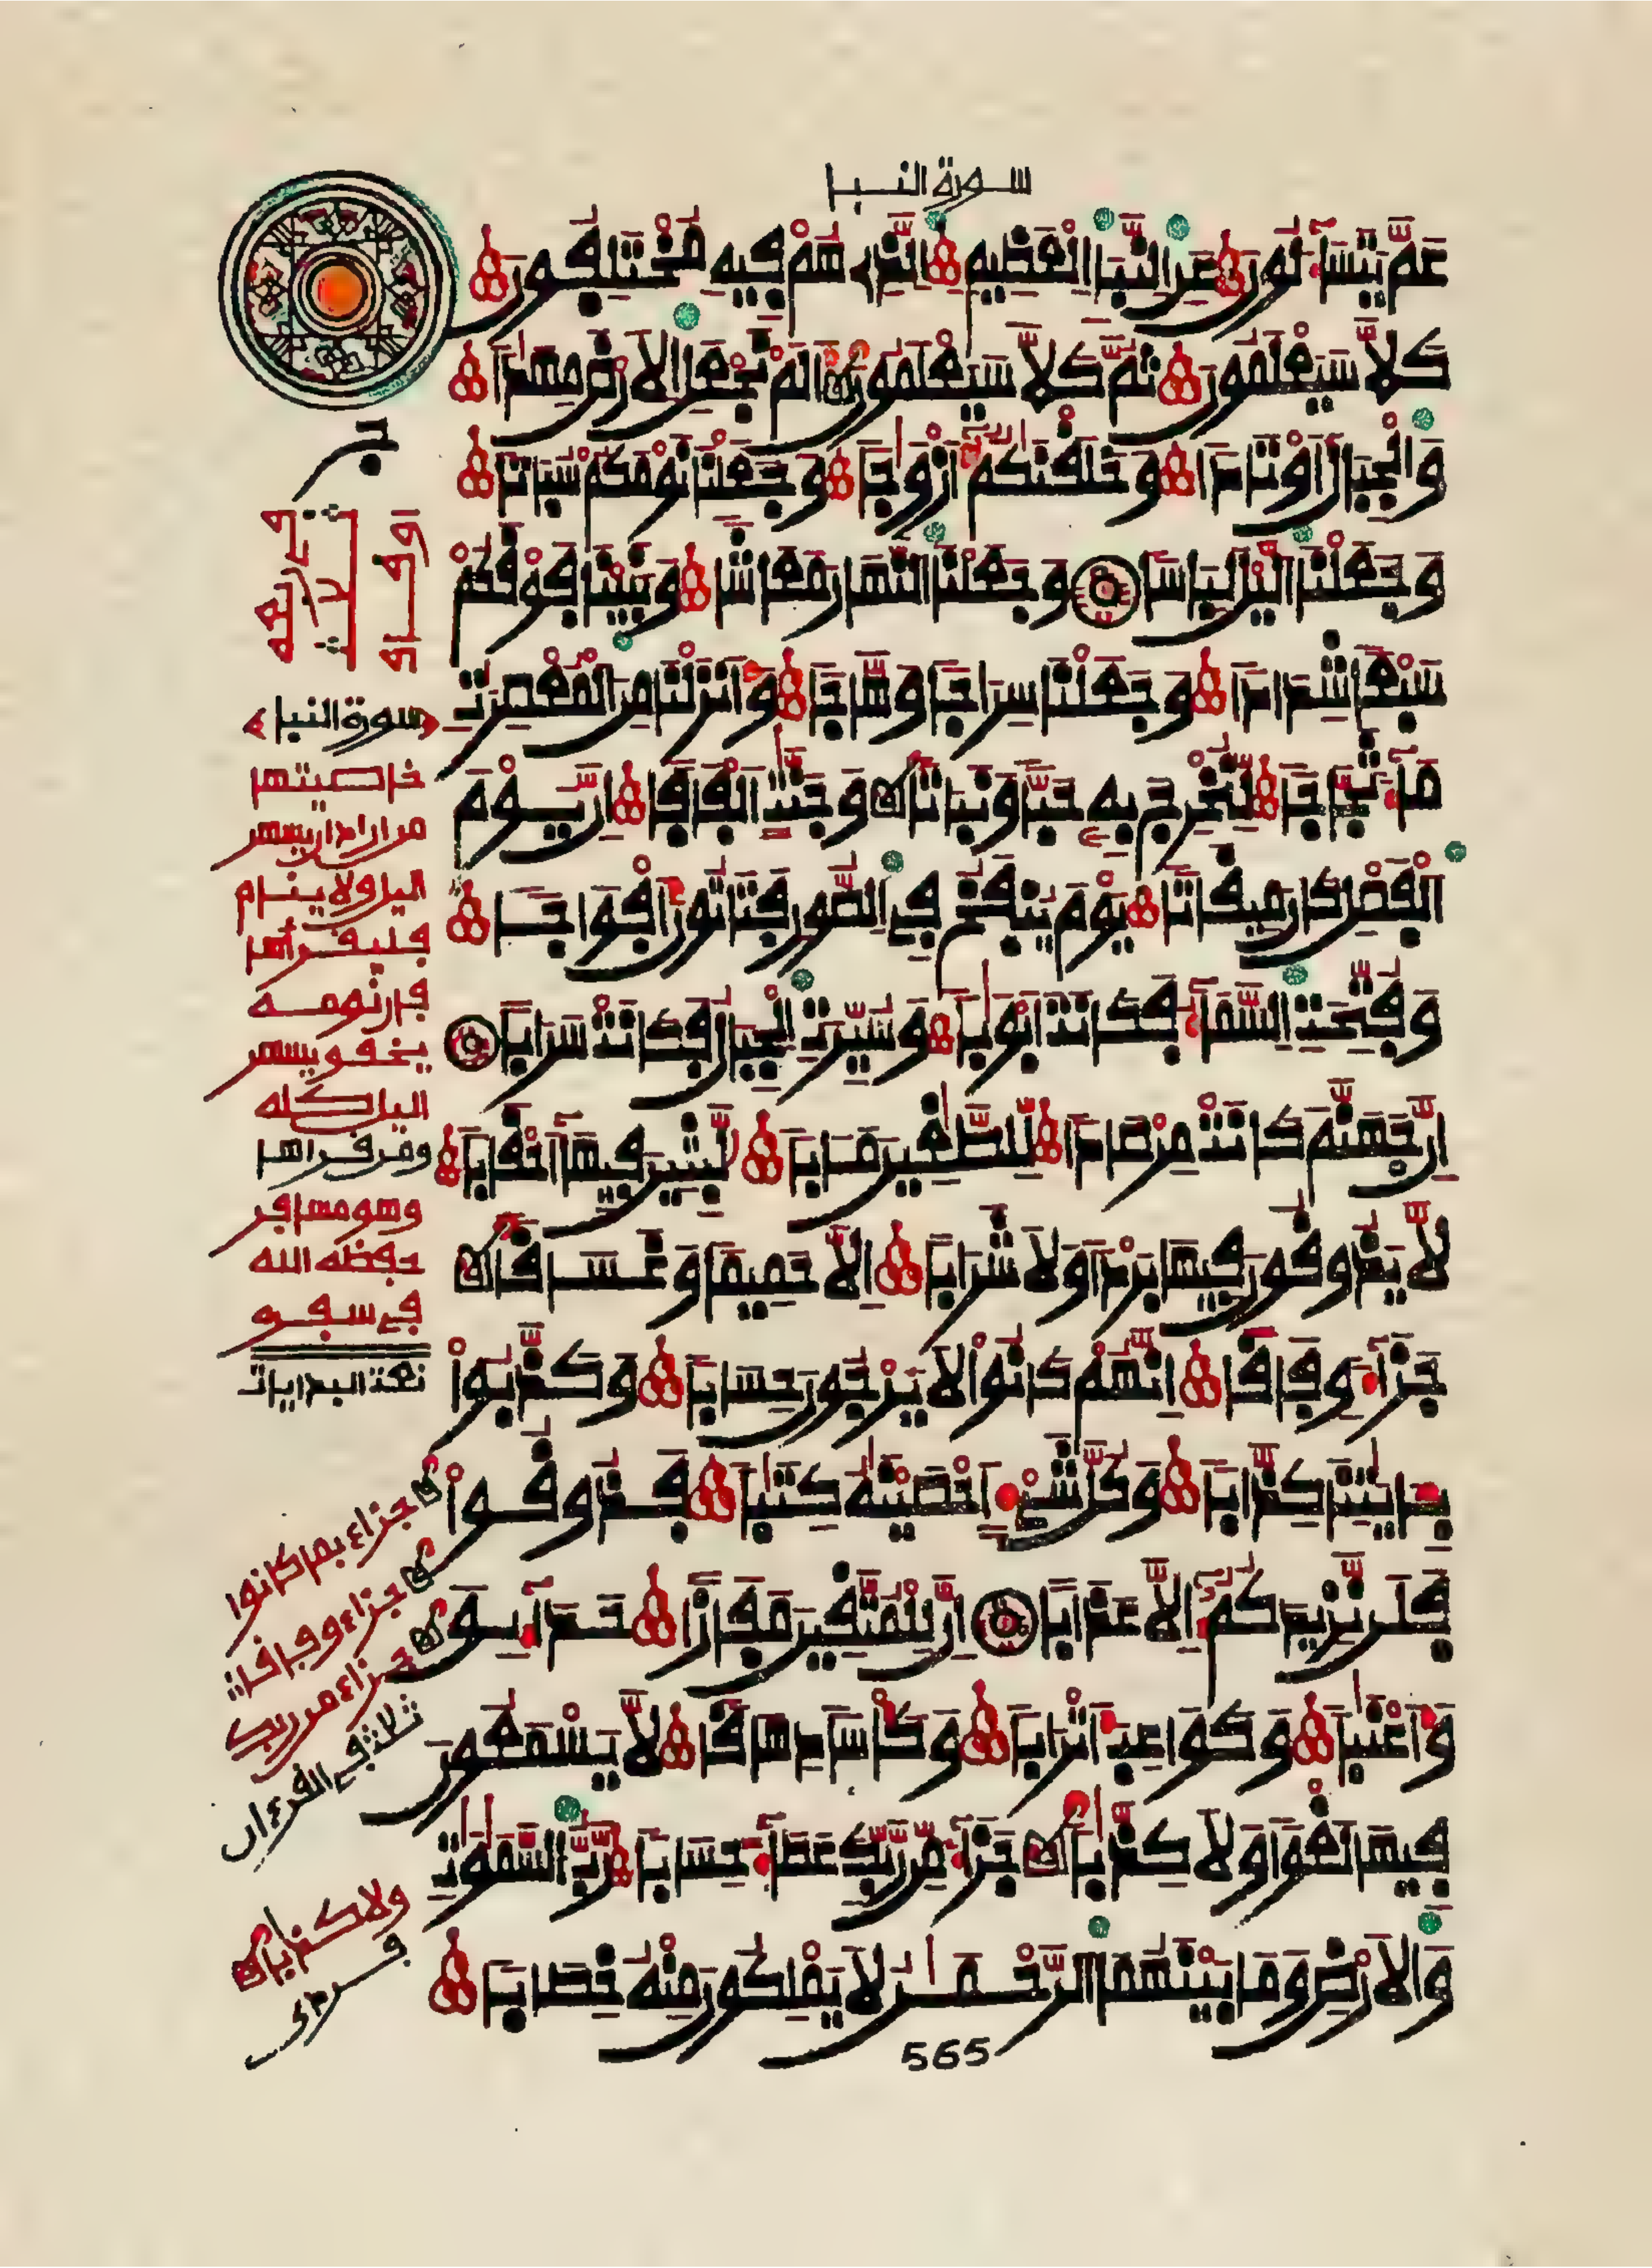 سورة النبإ
عَمَّ يَتَسَآءَلُونَ عَنِ النَّبَإِ الْعَظِيمِ الَّذِي هُمْ فِيهِ مُخْتَلِفُونَ
كَلَّا سَيَعْلَمُونَ ثُمَّ كَلَّا سَيَعْلَمُونَ أَلَمْ نَجْعَلِ الْأَرْضَ مِهَٰدًا
وَالْجِبَالَ أَوْتَادًا وَخَلَقْنَٰكُمْ أَزْوَٰجًا وَجَعَلْنَا نَوْمَكُمْ سُبَاتًا
وَجَعَلْنَا الَّيْلَ لِبَاسًا وَجَعَلْنَا النَّهَارَ مَعَاشًا وَبَنَيْنَا فَوْقَكُمْ
سَبْعًا شِدَادًا وَجَعَلْنَا سِرَاجًا وَهَّاجًا وَأَنزَلْنَا مِنَ الْمُعْصِرَٰتِ
مَآءً ثَجَّاجًا لِّنُخْرِجَ بِهِ حَبًّا وَنَبَاتًا وَجَنَّٰتٍ أَلْفَافًا إِنَّ يَوْمَ
الْفَصْلِ كَانَ مِيقَاتًا يَوْمَ يُنفَخُ فِي الصُّورِ فَتَأْتُونَ أَفْوَاجًا
وَفُتِّحَتِ السَّمَآءُ فَكَانَتْ أَبْوَٰبًا وَسُيِّرَتِ الْجِبَالُ فَكَانَتْ سَرَابًا
إِنَّ جَهَنَّمَ كَانَتْ مِرْصَادًا لِّلطَّٰغِينَ مَـَٔابًا لَّٰبِثِينَ فِيهَآ أَحْقَابًا
لَّا يَذُوقُونَ فِيهَا بَرْدًا وَلَا شَرَابًا إِلَّا حَمِيمًا وَغَسَاقًا
جَزَآءً وِفَاقًا إِنَّهُمْ كَانُوا لَا يَرْجُونَ حِسَابًا وَكَذَّبُوا
بِـَٔايَٰتِنَا كِذَّابًا وَكُلَّ شَيْءٍ أَحْصَيْنَٰهُ كِتَٰبًا فَذُوقُوا
فَلَن نَّزِيدَكُمُ إِلَّا عَذَابًا إِنَّ لِلْمُتَّقِينَ مَفَازًا حَدَآئِقَ
وَأَعْنَٰبًا وَكَوَاعِبَ أَتْرَابًا وَكَأْسًا دِهَاقًا لَّا يَسْمَعُونَ
فِيهَا لَغْوًا وَلَا كِذَّٰبًا جَزَآءً مِّن رَّبِّكَ عَطَآءً حِسَابًا رَّبُّ السَّمَٰوَٰتِ
وَالْأَرْضِ وَمَا بَيْنَهُمَا الرَّحْمَٰنُ لَا يَمْلِكُونَ مِنْهُ خِطَابًا
565
سورة النبإ
خاصيتها
من اراد ان يسهر
اليل ولا ينام
فليقرأها
فإن نومه
يخف ويسهر
اليل كله
ومن قرأها
وهو مسافر
حفظه الله
في سفره
جزاء بمن كانوا
جزاء وفاقا
جزاء من ربك
ثلاثة في القرءان
ولا كذابا
فردي